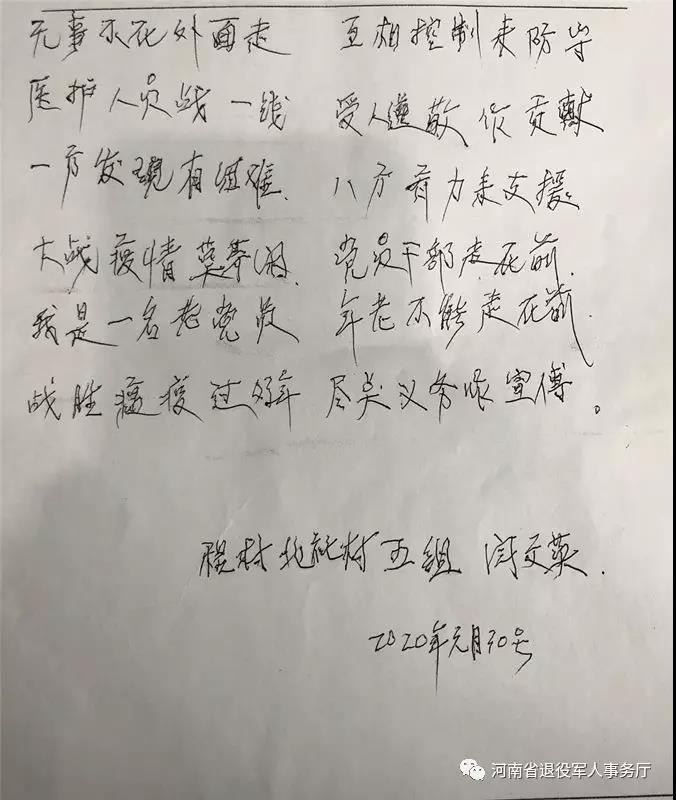 无事不在外面走 互相控制来防守
医护人员战一线 受人遵敬作贡献
一方发现有困难. 八方有力来支援
大战疫情莫等闲. 党员干部走在前.
我是一名老党员 年老不能走在前.
战胜瘟疫过好年 尽关义务做宣传。
村北 村五组 闫文英.
2020年元月30号
河南省退役军人事务厅